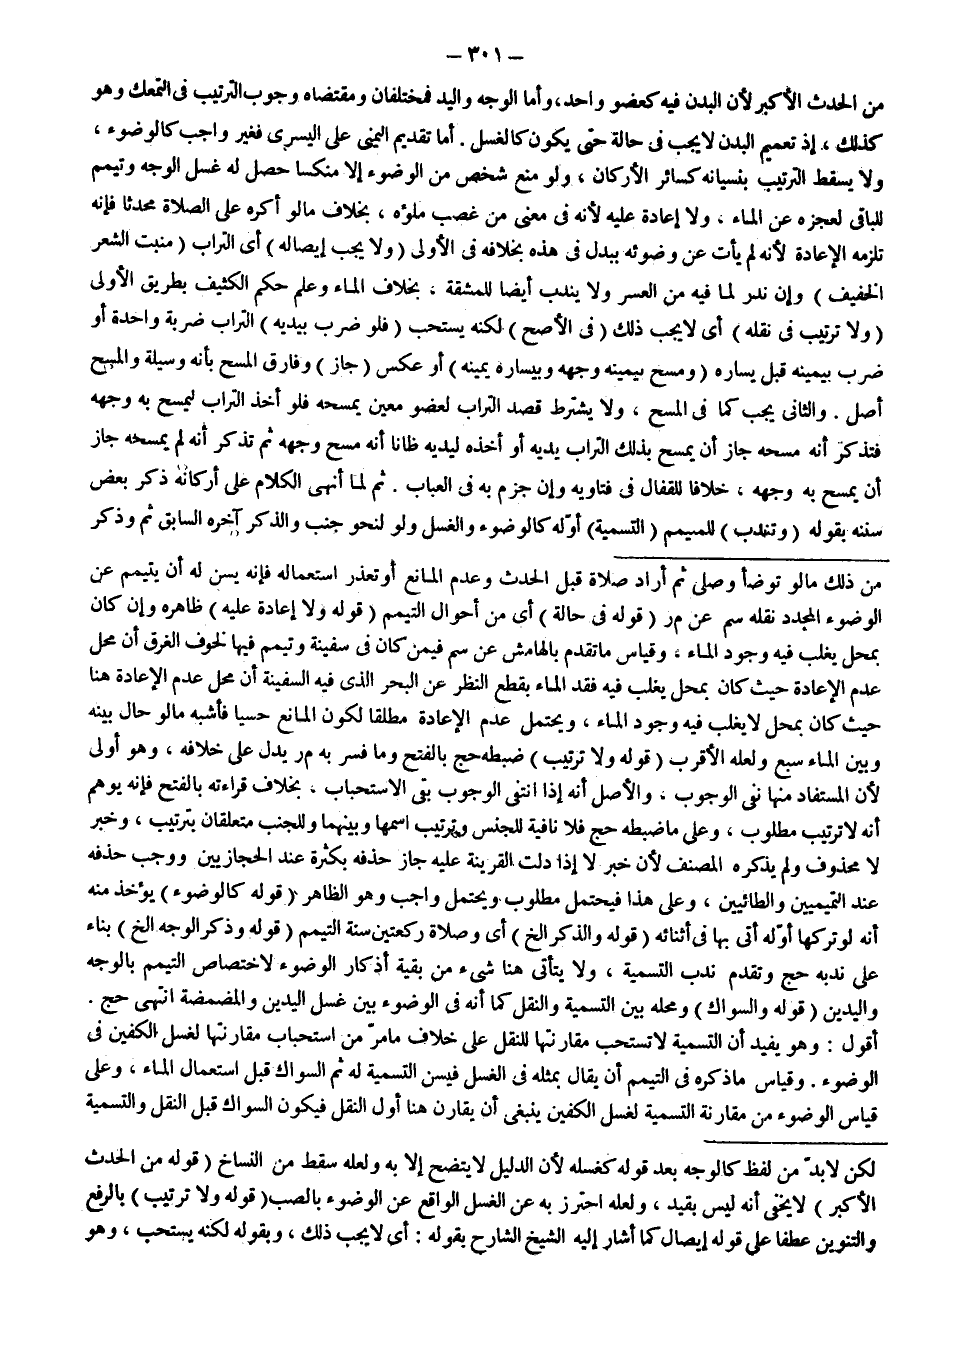 – ٣٠١ –
من الحدث الأكبر لأن البدن فيه كعضو واحد، وأما الوجه واليد فمختلفان ومقتضاه وجوب الترتيب فى التمعك وهو
كذلك ، إذ تعميم البدن لا يجب فى حالة حتى يكون كالغسل . أما تقديم اليمنى على اليسرى فغير واجب كالوضوء ،
ولا يسقط الترتيب بنسيانه كسائر الأركان ، ولو منع شخص من الوضوء إلا منكسا حصل له غسل الوجه وتيمم
للباقى لعجزه عن الماء ، ولا إعادة عليه لأنه فى معنى من غصب ماؤه ، بخلاف مالو أكره على الصلاة محدثا فإنه
تلزمه الإعادة لأنه لم يأت عن وضوئه ببدل فى هذه بخلافه فى الأولى (ولا يجب إيصاله) أى التراب (منبت الشعر
الخفيف) وإن ندر لما فيه من العسر ولا يندب أيضا للمشقة ، بخلاف الماء وعلم حكم الكثيف بطريق الأولى
(ولا ترتيب فى نقله) أى لا يجب ذلك (فى الأصح) لكنه يستحب (فلو ضرب بيديه) التراب ضربة واحدة أو
ضرب بيمينه قبل يساره (ومسح بيمينه وجهه وبيساره يمينه) أو عكس (جاز) وفارق المسح بأنه وسيلة والمسح
أصل . والثانى يجب كما فى المسح ، ولا يشترط قصد التراب لعضو معين يمسحه فلو أخذ التراب ليمسح به وجهه
فتذكر أنه مسحه جاز أن يمسح بذلك التراب يديه أو أخذه ليديه ظانا أنه مسح وجهه ثم تذكر أنه لم يمسحه جاز
أن يمسح به وجهه ، خلافا للقفال فى فتاويه وإن جزم به فى العباب . ثم لما أنهى الكلام على أركانه ذكر بعض
سننه بقوله (وتندب) للمتيمم (التسمية) أوّله كالوضوء والغسل ولو لنحو جنب والذكر آخره السابق ثم وذكر
من ذلك مالو توضأ وصلى ثم أراد صلاة قبل الحدث وعدم المانع أو تعذر استعماله فإنه يسن له أن يتيمم عن
الوضوء المجدد نقله سم عن مر (قوله فى حالة) أى من أحوال التيمم (قوله ولا إعادة عليه) ظاهره وإن كان
بمحل يغلب فيه وجود الماء ، وقياس ماتقدم بالهامش عن سم فيمن كان فى سفينة وتيمم فيها لخوف الغرق أن محل
عدم الإعادة حيث كان بمحل يغلب فيه فقد الماء بقطع النظر عن البحر الذى فيه السفينة أن محل عدم الإعادة هنا
حيث كان بمحل لا يغلب فيه وجود الماء ، ويحتمل عدم الإعادة مطلقا لكون المانع حسيا فأشبه مالو حال بينه
وبين الماء سبع ولعله الأقرب (قوله ولا ترتيب) ضبطه حج بالفتح وما فسر به مر يدل على خلافه ، وهو أولى
لأن المستفاد منها نفى الوجوب ، والأصل أنه إذا انتفى الوجوب بقى الاستحباب ، بخلاف قراءته بالفتح فإنه يوهم
أنه لا ترتيب مطلوب ، وعلى ماضبطه حج فلا نافية للجنس وترتيب اسمها وبينهما وللجنب متعلقان بترتيب ، وخبر
لا محذوف ولم يذكره المصنف لأن خبر لا إذا دلت القرينة عليه جاز حذفه بكثرة عند الحجازيين ووجب حذفه
عند التميميين والطائيين ، وعلى هذا فيحتمل مطلوب ويحتمل واجب وهو الظاهر (قوله كالوضوء) يؤخذ منه
أنه لو تركها أوّله أتى بها فى أثنائه (قوله والذكر الخ) أى وصلاة ركعتين سنة التيمم (قوله وذكر الوجه الخ) بناء
على ندبه حج وتقدم ندب التسمية ، ولا يتأتى هنا شىء من بقية أذكار الوضوء لاختصاص التيمم بالوجه
واليدين (قوله والسواك) ومحله بين التسمية والنقل كما أنه فى الوضوء بين غسل اليدين والمضمضة انتهى حج .
أقول : وهو يفيد أن التسمية لا تستحب مقارنتها للنقل على خلاف مامرّ من استحباب مقارنتها لغسل الكفين فى
الوضوء . وقياس ماذكره فى التيمم أن يقال بمثله فى الغسل فيسن التسمية له ثم السواك قبل استعمال الماء ، وعلى
قياس الوضوء من مقارنة التسمية لغسل الكفين ينبغى أن يقارن هنا أول النقل فيكون السواك قبل النقل والتسمية
لكن لابدّ من لفظ كالوجه بعد قوله كغسله لأن الدليل لا يتضح إلا به ولعله سقط من النساخ (قوله من الحدث
الأكبر) لا يخفى أنه ليس بقيد ، ولعله احترز به عن الغسل الواقع عن الوضوء بالصب (قوله ولا ترتيب) بالرفع
والتنوين عطفا على قوله إيصال كما أشار إليه الشيخ الشارح بقوله : أى لا يجب ذلك ، وبقوله لكنه يستحب ، وهو